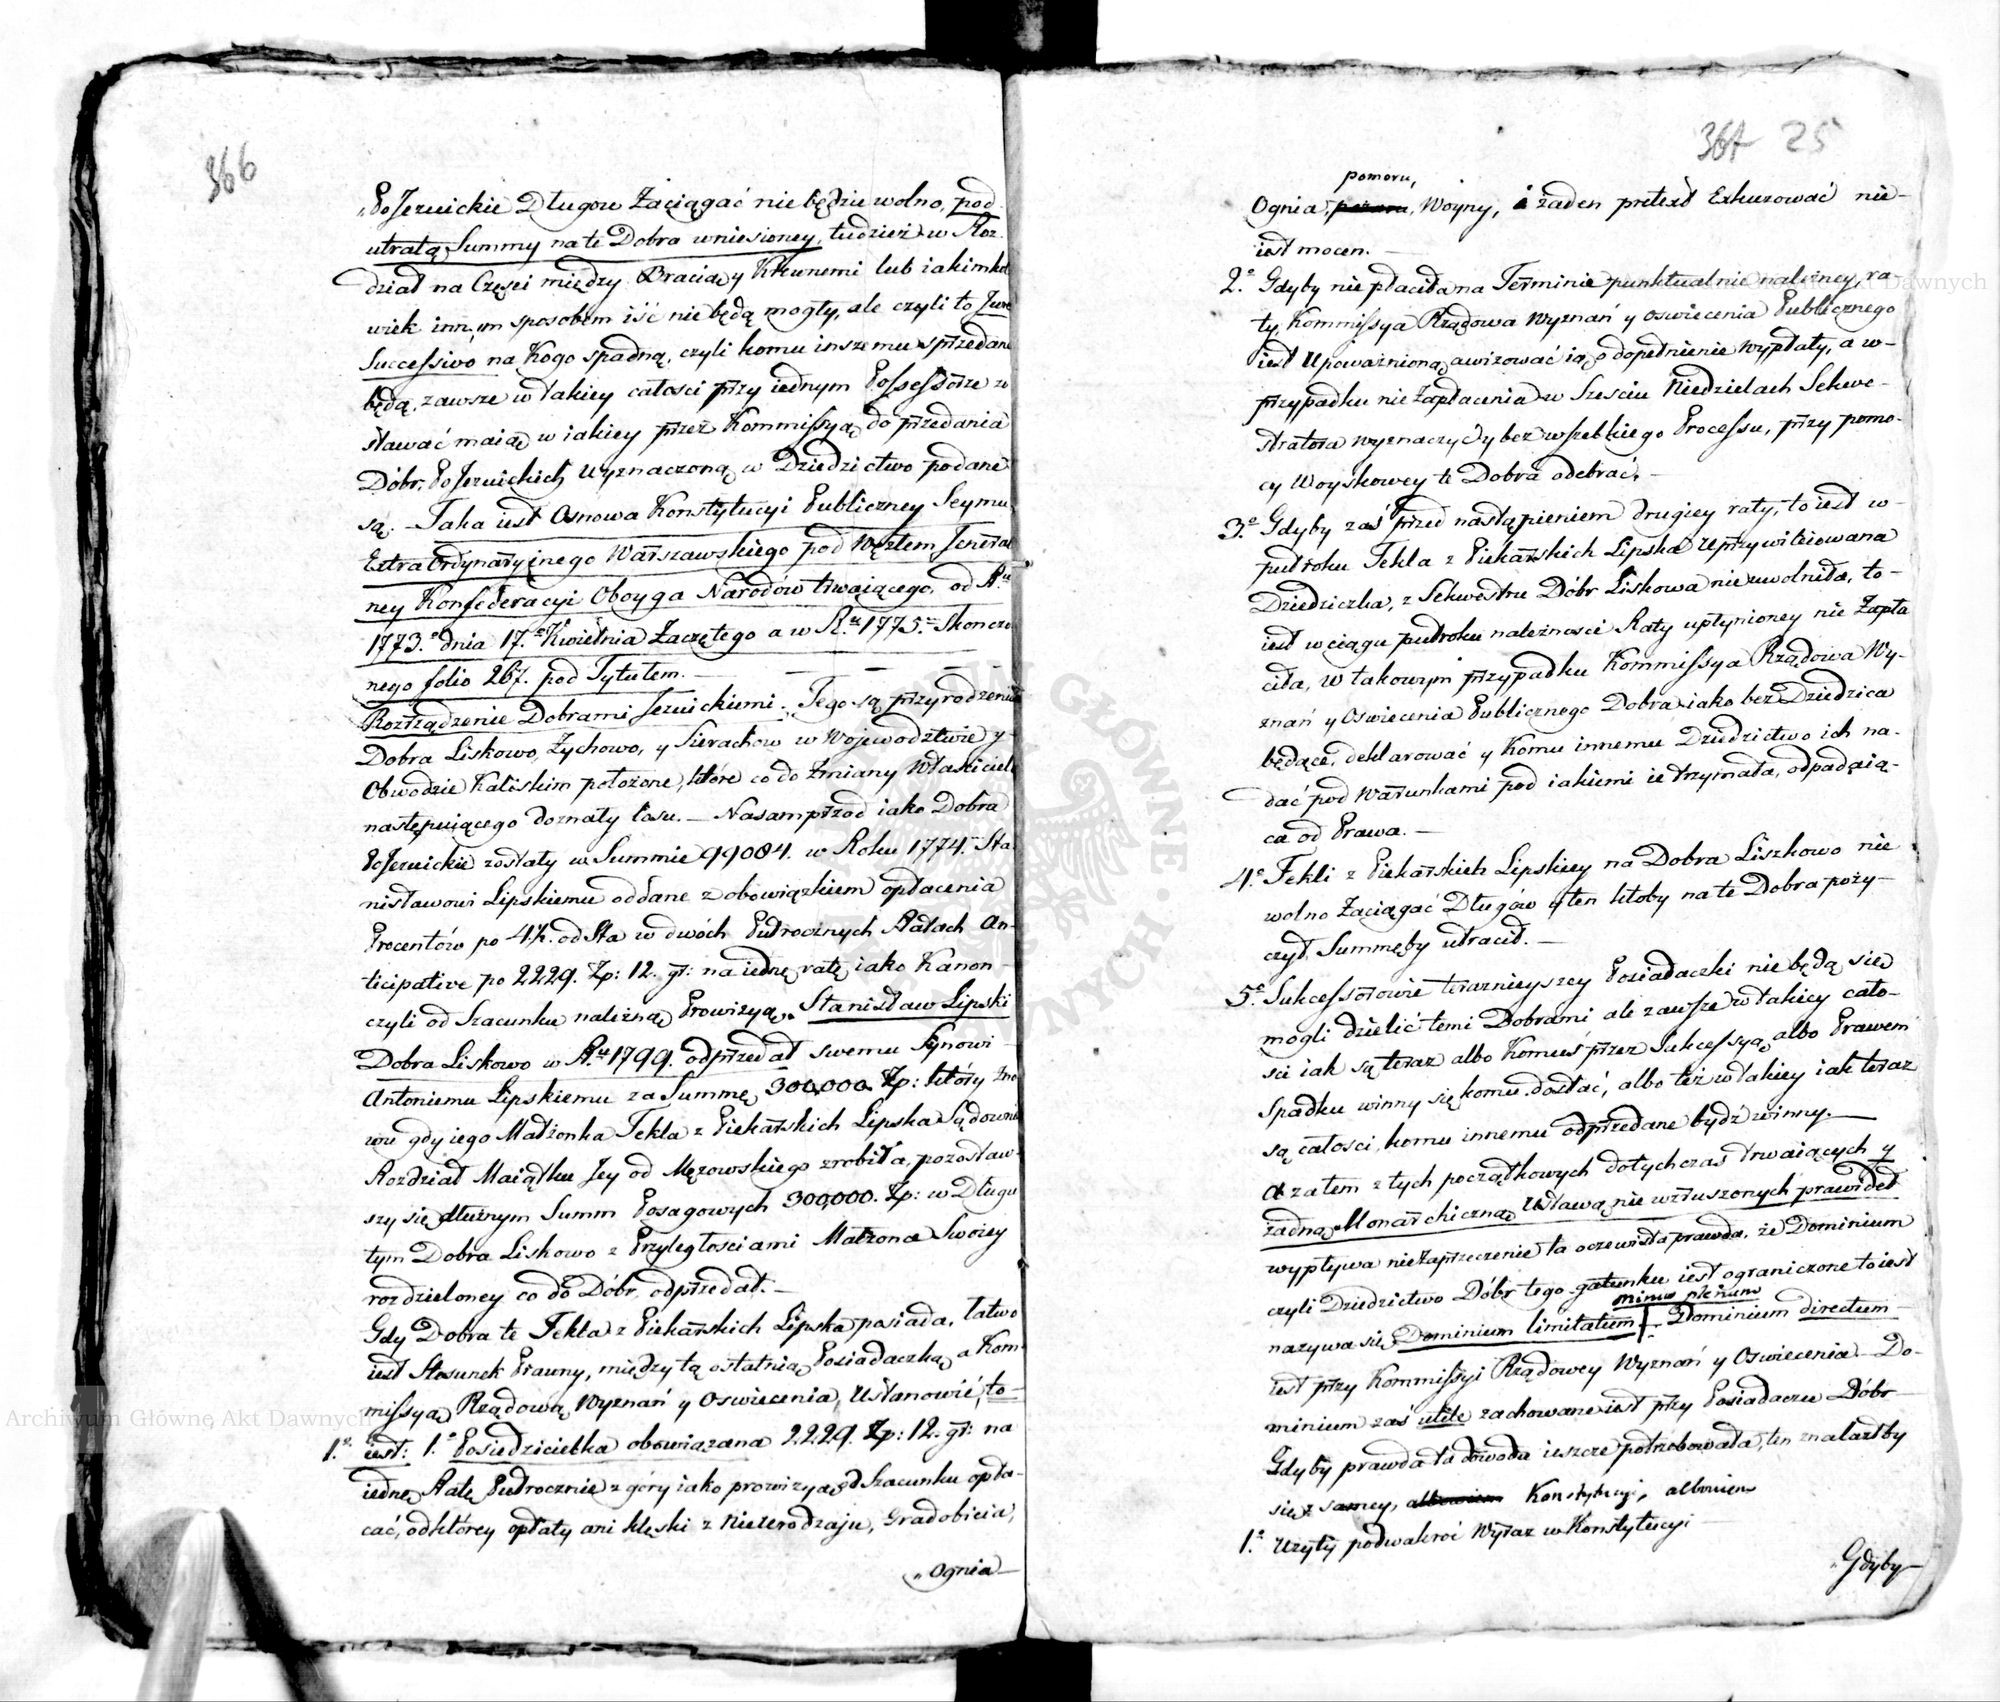 366
„PoJezuickie Długow Zaciągać nie będzie wolno, pod
utratą Summy na te Dobra wniesioney, tudzież w Roz-
dział na Części między Bracią y Krewnemi lub iakimkol
wiek innym sposobem iść nie będą mogły, ale czyli to Jure
Successivo na Kogo spadną, czyli komu inszemu sprzedane
będą, zawsze w takiey całosci przy iednym Possessorze zo
stawać maią w iakiey przez Kommissyą do przedania
Dóbr PoJezuickich wyznaczoną w Dziedzictwo podane
są. — Taka iest Osnowa Konstytucyi Publiczney Seymu
Extraordynaryinego Warszawskiego pod Węzłem Jeneral
ney Konfederacyi Oboyga Narodów trwaiącego, od Ru
1773.o dnia 17.o Kwietnia Zaczętego a w R.u 1775. Skończo
nego folio 267. pod Tytułem. —
Rozrządzenie Dobrami Jezuickiemi. Tego są przyrodzenia
Dobra Liskowo, Zychowo, y Sierachow w Województwie y
Obwodzie Kaliskim położone, które co do Zmiany Właściciela
następuiącego doznały losu. — Nasamprzod iako Dobra
PoJezuickie zostały w Summie 99084. w Roku 1774. Sta
nisławowi Lipskiemu oddane z obowiązkiem opłacenia
Procentów po 4½. od Sta w dwóch Pułrocznych Ratach An-
ticipative po 2229. Zp: 12. gr: na iednę ratę iako Kanon
czyli od Szacunku należną Prowizyą. Stanisław Lipski
Dobra Liskowo w R.u 1799. odprzedał swemu Synowi
Antoniemu Lipskiemu za Summę 300,000. Zp: który zno
wu gdy iego Małżonka Tekla z Piekarskich Lipska Sądownie
Rozdział Maiątku Jey od Mężowskiego zrobiła, pozostaw-
szy się dłużnym Summ Posagowych 300,000. Zp: w Długu
tym Dobra Liskowo z Przyległosciami Małżonce Swoiey
rozdzieloney co do Dóbr, odprzedał. —
Gdy Dobra te Tekla z Piekarskich Lipska posiada, łatwo
iest Stosunek Prawny, między tą ostatnią Posiadaczką a Kom-
missyą Rządową Wyznań y Oswiecenia, Ustanowić, to-
1.o iest: 1.o Posiedzicielka obowiązana 2229. Zp: 12. gr: na
iednę Ratę Pułrocznie z góry iako prowizyą od Szacunku opła-
cać, od którey opłaty ani klęski z Nieurodzaju, Gradobicia,
„Ognia —
367 25
pomoru,
Ognia, Woyny, i żaden pretext Exkuzować nie-
iest mocen. —
2.o Gdyby nie płaciła na Terminie punktualnie należney ra-
ty, Kommissya Rządowa Wyznań y oswiecenia Publicznego
iest Upoważnioną awizować ią o dopełnienie Wypłaty, a w-
przypadku nie Zapłacenia w Szesciu Niedzielach Sekwe-
stratora wyznaczyć y bez wszelkiego Processu, przy pomo-
cy Woyskowey te Dobra odebrać. —
3.o Gdyby zaś przed nastąpieniem drugiey raty, to iest w-
pułroku Tekla z Piekarskich Lipska Uprzywileiowana
Dziedziczka, z Sekwestru Dóbr Liskowa nie uwolniła, to-
iest w ciągu pułroku należnosci Raty upłynioney nie Zapła
ciła, w takowym przypadku Kommissya Rządowa Wy-
znań y Oswiecenia Publicznego Dobra iako bez Dziedzica
będące, deklarować y Komu innemu Dziedzictwo ich na-
dać pod Warunkami pod iakiemi ie trzymała, odpadaią-
ca od Prawa. —
4.o Tekli z Piekarskich Lipskiey na Dobra Liszkowo nie
wolno Zaciągać Długów y ten ktoby na te Dobra poży-
czył, Summęby utracił. —
5.o Sukcessorowie teraznieyszey Posiadaczki nie będą się
mogli dzielić temi Dobrami ale zawsze w takiey cało-
sci iak są teraz albo Komuś przez Sukcessyą, albo Prawem
Spadku winny się komu dostać, albo też w takiey iak teraz
są całosci, komu innemu odprzedane bydź winny. —
A zatem z tych początkowych dotychczas trwaiących y
żadną Monarchiczną Ustawą nie wzruszonych prawideł
wypływa niezaprzeczenie ta oczewista prawda, że Dominium
czyli Dziedzictwo Dóbr tego gatunku iest ograniczone to iest
minus plenum
nazywa się Dominium limitatum. Dominium directum
iest przy Kommissyi Rządowey Wyznań y Oswiecenia. Do-
minium zaś utile zachowane iest przy Posiadaczu Dóbr
Gdyby prawda ta dowodu ieszcze potrzebowała, ten znalazłby
się z samey, albowiem Konstytucyi, albowiem
1.o Użyty podwakroć Wyraz w Konstytucyi
„Gdyby —
Archiwum Główne Akt Dawnych